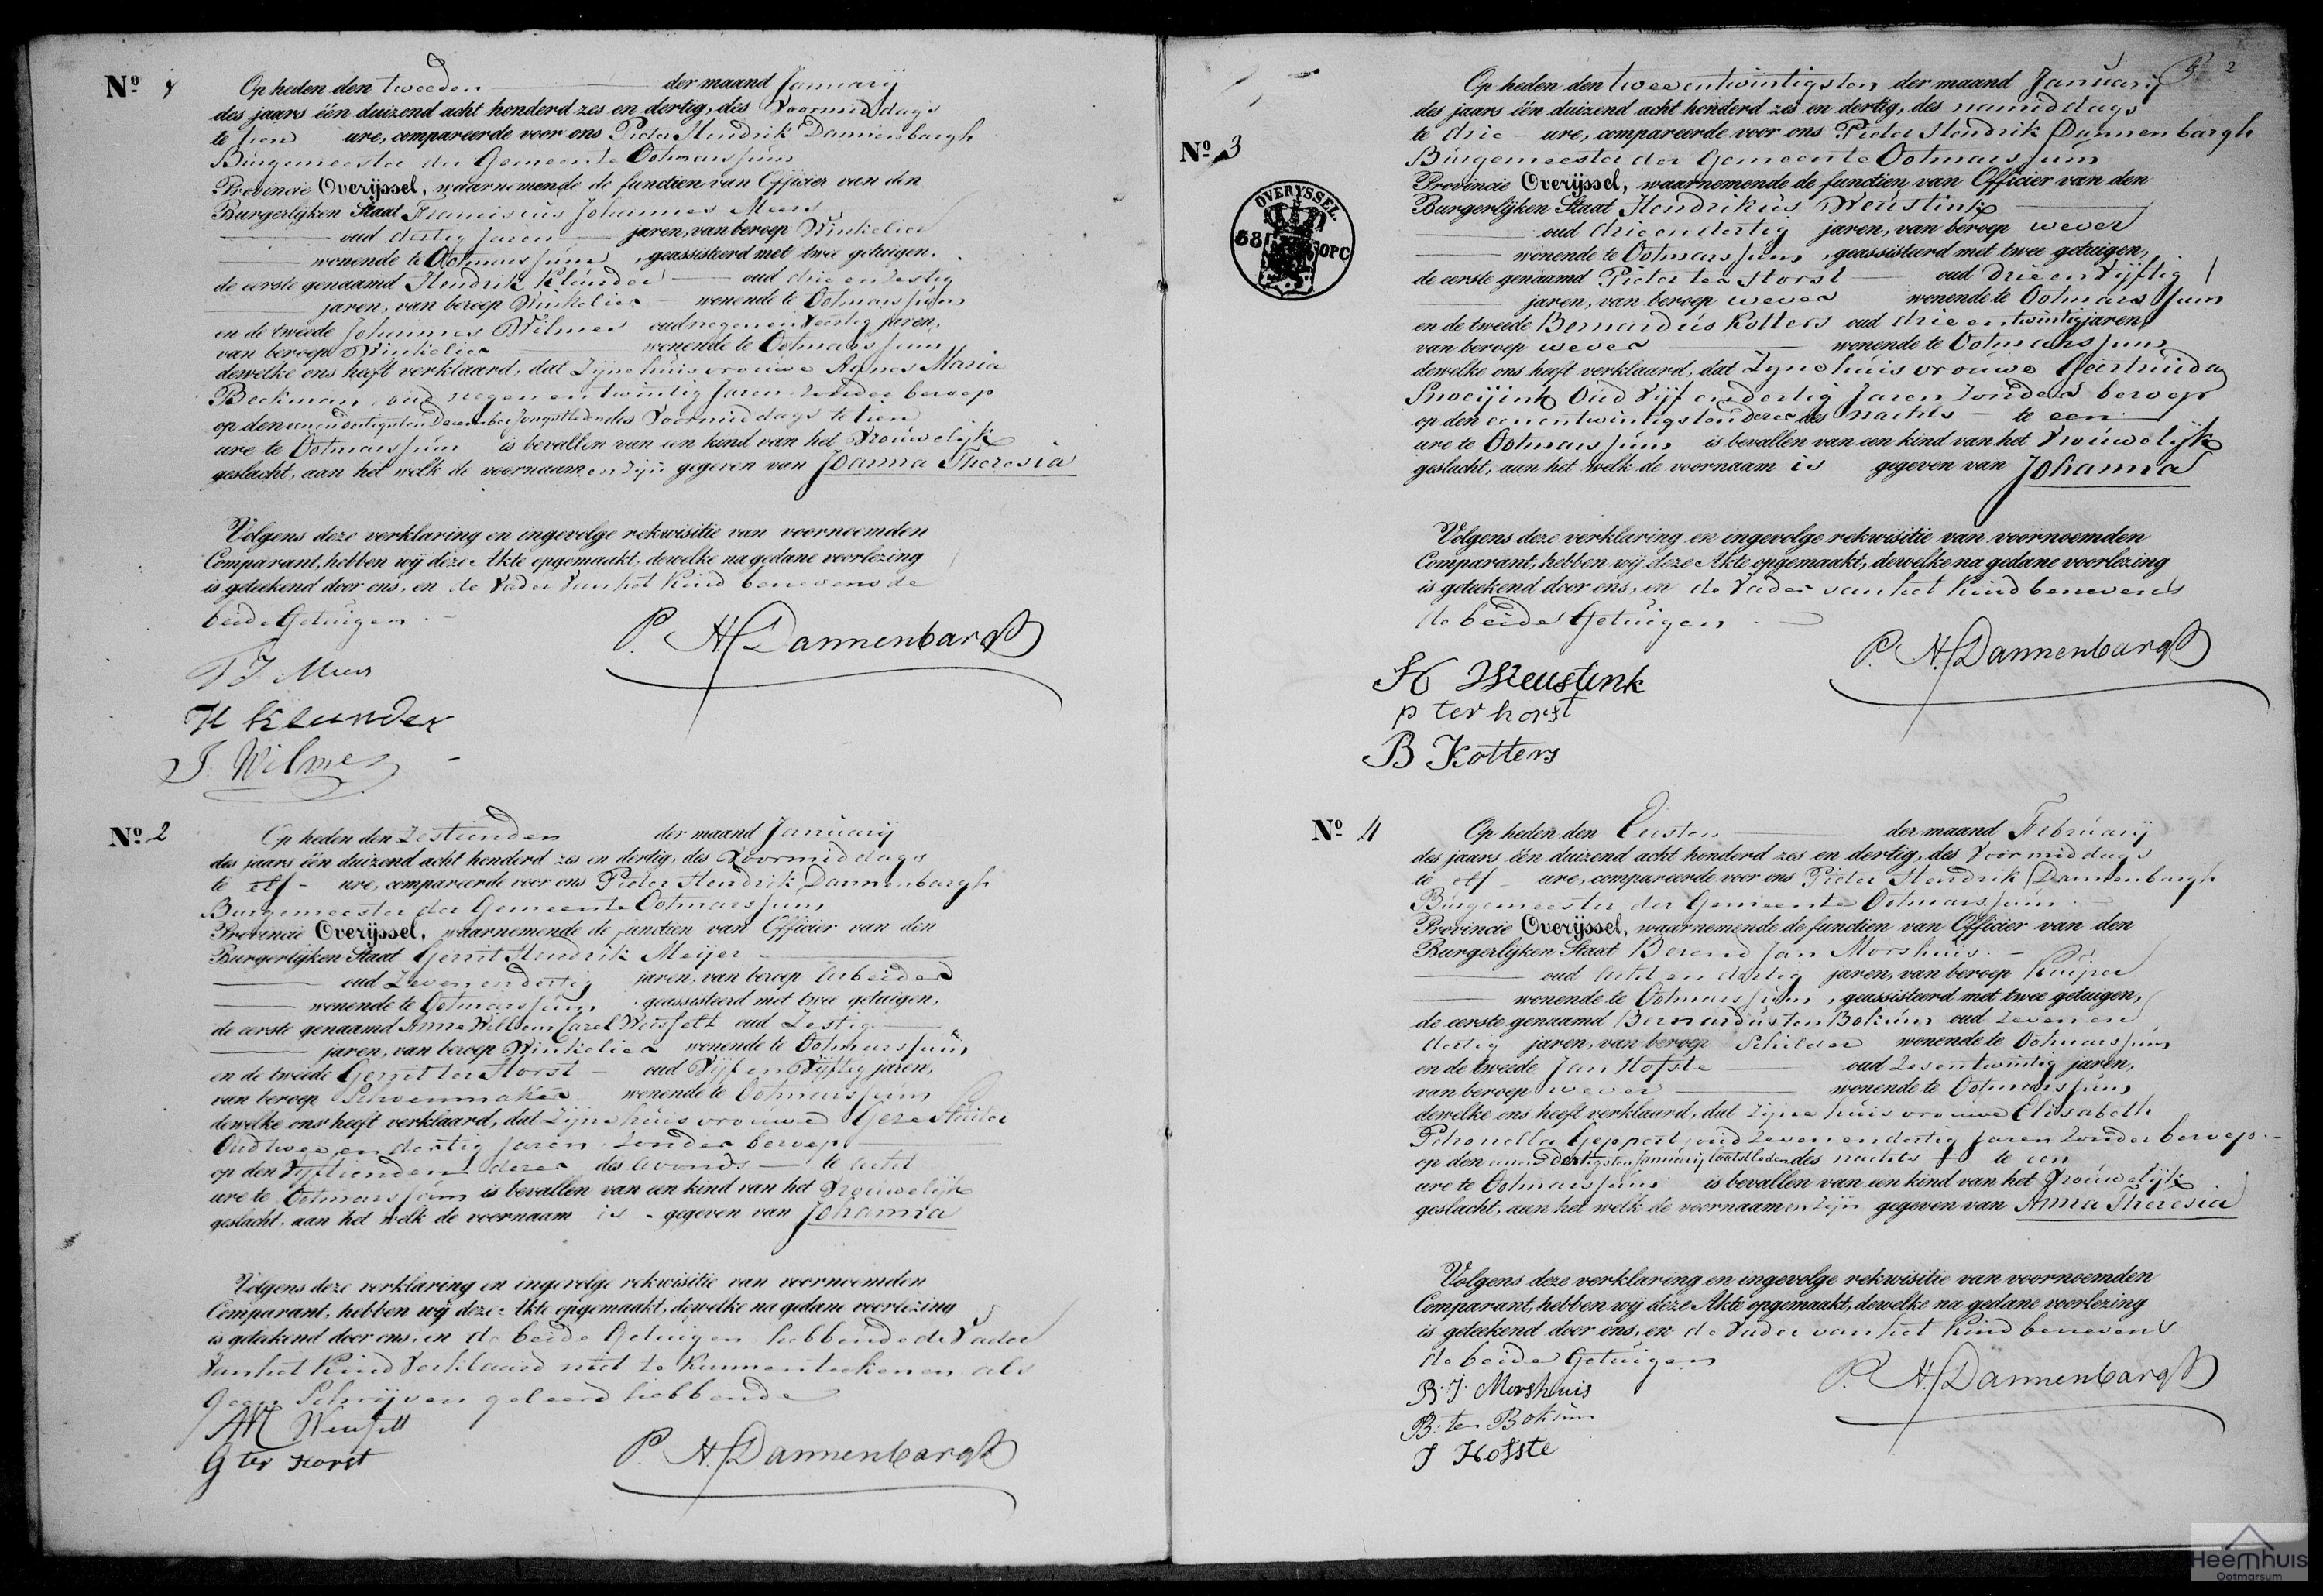 Nº 1
Op heden den tweeden der maand Januarij
des jaars één duizend acht honderd zes en dertig, des Voormiddags
te tien ure, compareerde voor ons Pieter Hendrik Dannenbargh
Burgemeester der Gemeente Ootmarssum
Provincie Overijssel, waarnemende de functien van Officier van den
Burgerlijken Staat Franciscus Johannes Meers
oud dertig jaren jaren, van beroep Winkelier
wonende te Ootmarssum, geassisteerd met twee getuigen,
de eerste genaamd Hendrik Klunder oud drie en zestig
jaren, van beroep Winkelier wonende te Ootmarssum
en de tweede Johannes Wilmes oud negen en veertig jaren,
van beroep Winkelier wonende te Ootmarssum
dewelke ons heeft verklaard, dat Zijne huisvrouwe Agnes Maria
Beckman, oud negen en twintig Jaren zonder beroep
op den een en dertigsten December Jongstleden des Voormiddags te tien
ure te Ootmarssum is bevallen van een kind van het Vrouwelijk
geslacht, aan het welk de voornaamen zijn gegeven van Joanna Theresia
Volgens deze verklaring en ingevolge rekwisitie van voornoemden
Comparant, hebben wij deze Akte opgemaakt, dewelke na gedane voorlezing
is geteekend door ons, en de Vader van het Kind benevens de
beide Getuigen.
P. H. Dannenbargh
F J Meers
H Klunder
J. Wilmes
Nº 2
Op heden den Zestienden der maand Januarij
des jaars één duizend acht honderd zes en dertig, des Voormiddags
te elf ure, compareerde voor ons Pieter Hendrik Dannenbargh
Burgemeester der Gemeente Ootmarssum
Provincie Overijssel, waarnemende de functien van Officier van den
Burgerlijken Staat Gerrit Hendrik Meijer
oud Zeven en dertig jaren, van beroep Arbeider
wonende te Ootmarssum, geassisteerd met twee getuigen,
de eerste genaamd Anne Willem Carel oud Zestig
jaren, van beroep Winkelier wonende te Ootmarssum
en de tweede Gerrit ter Horst oud Vijf en Vijftig jaren,
van beroep Schoenmaker wonende te Ootmarssum
dewelke ons heeft verklaard, dat Zijne huisvrouwe Geze
Oud twee en dertig Jaren zonder beroep
op den Vijftienden dezer des avonds te acht
ure te Ootmarssum is bevallen van een kind van het Vrouwelijk
geslacht, aan het welk de voornaam is gegeven van Johanna
Volgens deze verklaring en ingevolge rekwisitie van voornoemden
Comparant, hebben wij deze Akte opgemaakt, dewelke na gedane voorlezing
is geteekend door ons, en de beide Getuigen hebbende de Vader
van het Kind Verklaard niet te kunnen teekenen als
geen Schrijven geleerd hebbende
G ter Horst
P. H. Dannenbargh
2
Nº 3
OVERYSSEL.
OPC
Op heden den tweeentwintigsten der maand Januarij
des jaars één duizend acht honderd zes en dertig, des namiddags
te drie ure, compareerde voor ons Pieter Hendrik Dannenbargh
Burgemeester der Gemeente Ootmarssum
Provincie Overijssel, waarnemende de functien van Officier van den
Burgerlijken Staat Hendrikus Weustink
oud drie en dertig jaren, van beroep wever
wonende te Ootmarssum, geassisteerd met twee getuigen,
de eerste genaamd Pieter ter Horst oud Drie en Vijftig
jaren, van beroep wever wonende te Ootmarssum
en de tweede Bernardus Kotters oud drie en twintig jaren,
van beroep wever wonende te Ootmarssum
dewelke ons heeft verklaard, dat Zijne huisvrouwe Geertruida
Snoeijink Oud Vijf en dertig Jaren Zonder beroep
op den eenentwintigsten dezer des nachts te een
ure te Ootmarssum is bevallen van een kind van het Vrouwelijk
geslacht, aan het welk de voornaam is gegeven van Johanna
Volgens deze verklaring en ingevolge rekwisitie van voornoemden
Comparant, hebben wij deze Akte opgemaakt, dewelke na gedane voorlezing
is geteekend door ons, en de Vader van het Kind benevens
de beide Getuigen.
P. H. Dannenbargh
H Weustink
p ter horst
B Kotters
Nº 4
Op heden den Eersten der maand Februarij
des jaars één duizend acht honderd zes en dertig, des Voormiddags
te elf ure, compareerde voor ons Pieter Hendrik Dannenbargh
Burgemeester der Gemeente Ootmarssum
Provincie Overijssel, waarnemende de functien van Officier van den
Burgerlijken Staat Berend Jan Morshuis
oud Acht en dertig jaren, van beroep Kuiper
wonende te Ootmarssum, geassisteerd met twee getuigen,
de eerste genaamd Bernardus ten Bokum oud zeven en
dertig jaren, van beroep Schilder wonende te Ootmarssum
en de tweede Jan Hofste oud Zesentwintig jaren,
van beroep wever wonende te Ootmarssum
dewelke ons heeft verklaard, dat zijne huisvrouwe Elisabeth
Petronella Geppert, oud zeven en dertig Jaren zonder beroep
op den een en Dertigsten Januarij laatstleden des nachts te een
ure te Ootmarssum is bevallen van een kind van het Vrouwelijk
geslacht, aan het welk de voornaamen zijn gegeven van Anna Theresia
Volgens deze verklaring en ingevolge rekwisitie van voornoemden
Comparant, hebben wij deze Akte opgemaakt, dewelke na gedane voorlezing
is geteekend door ons, en de Vader van het Kind benevens
de beide Getuigen
P. H. Dannenbargh
B. J. Morshuis
B. ten Bokum
J Hofste
Heemhuis
Ootmarsum